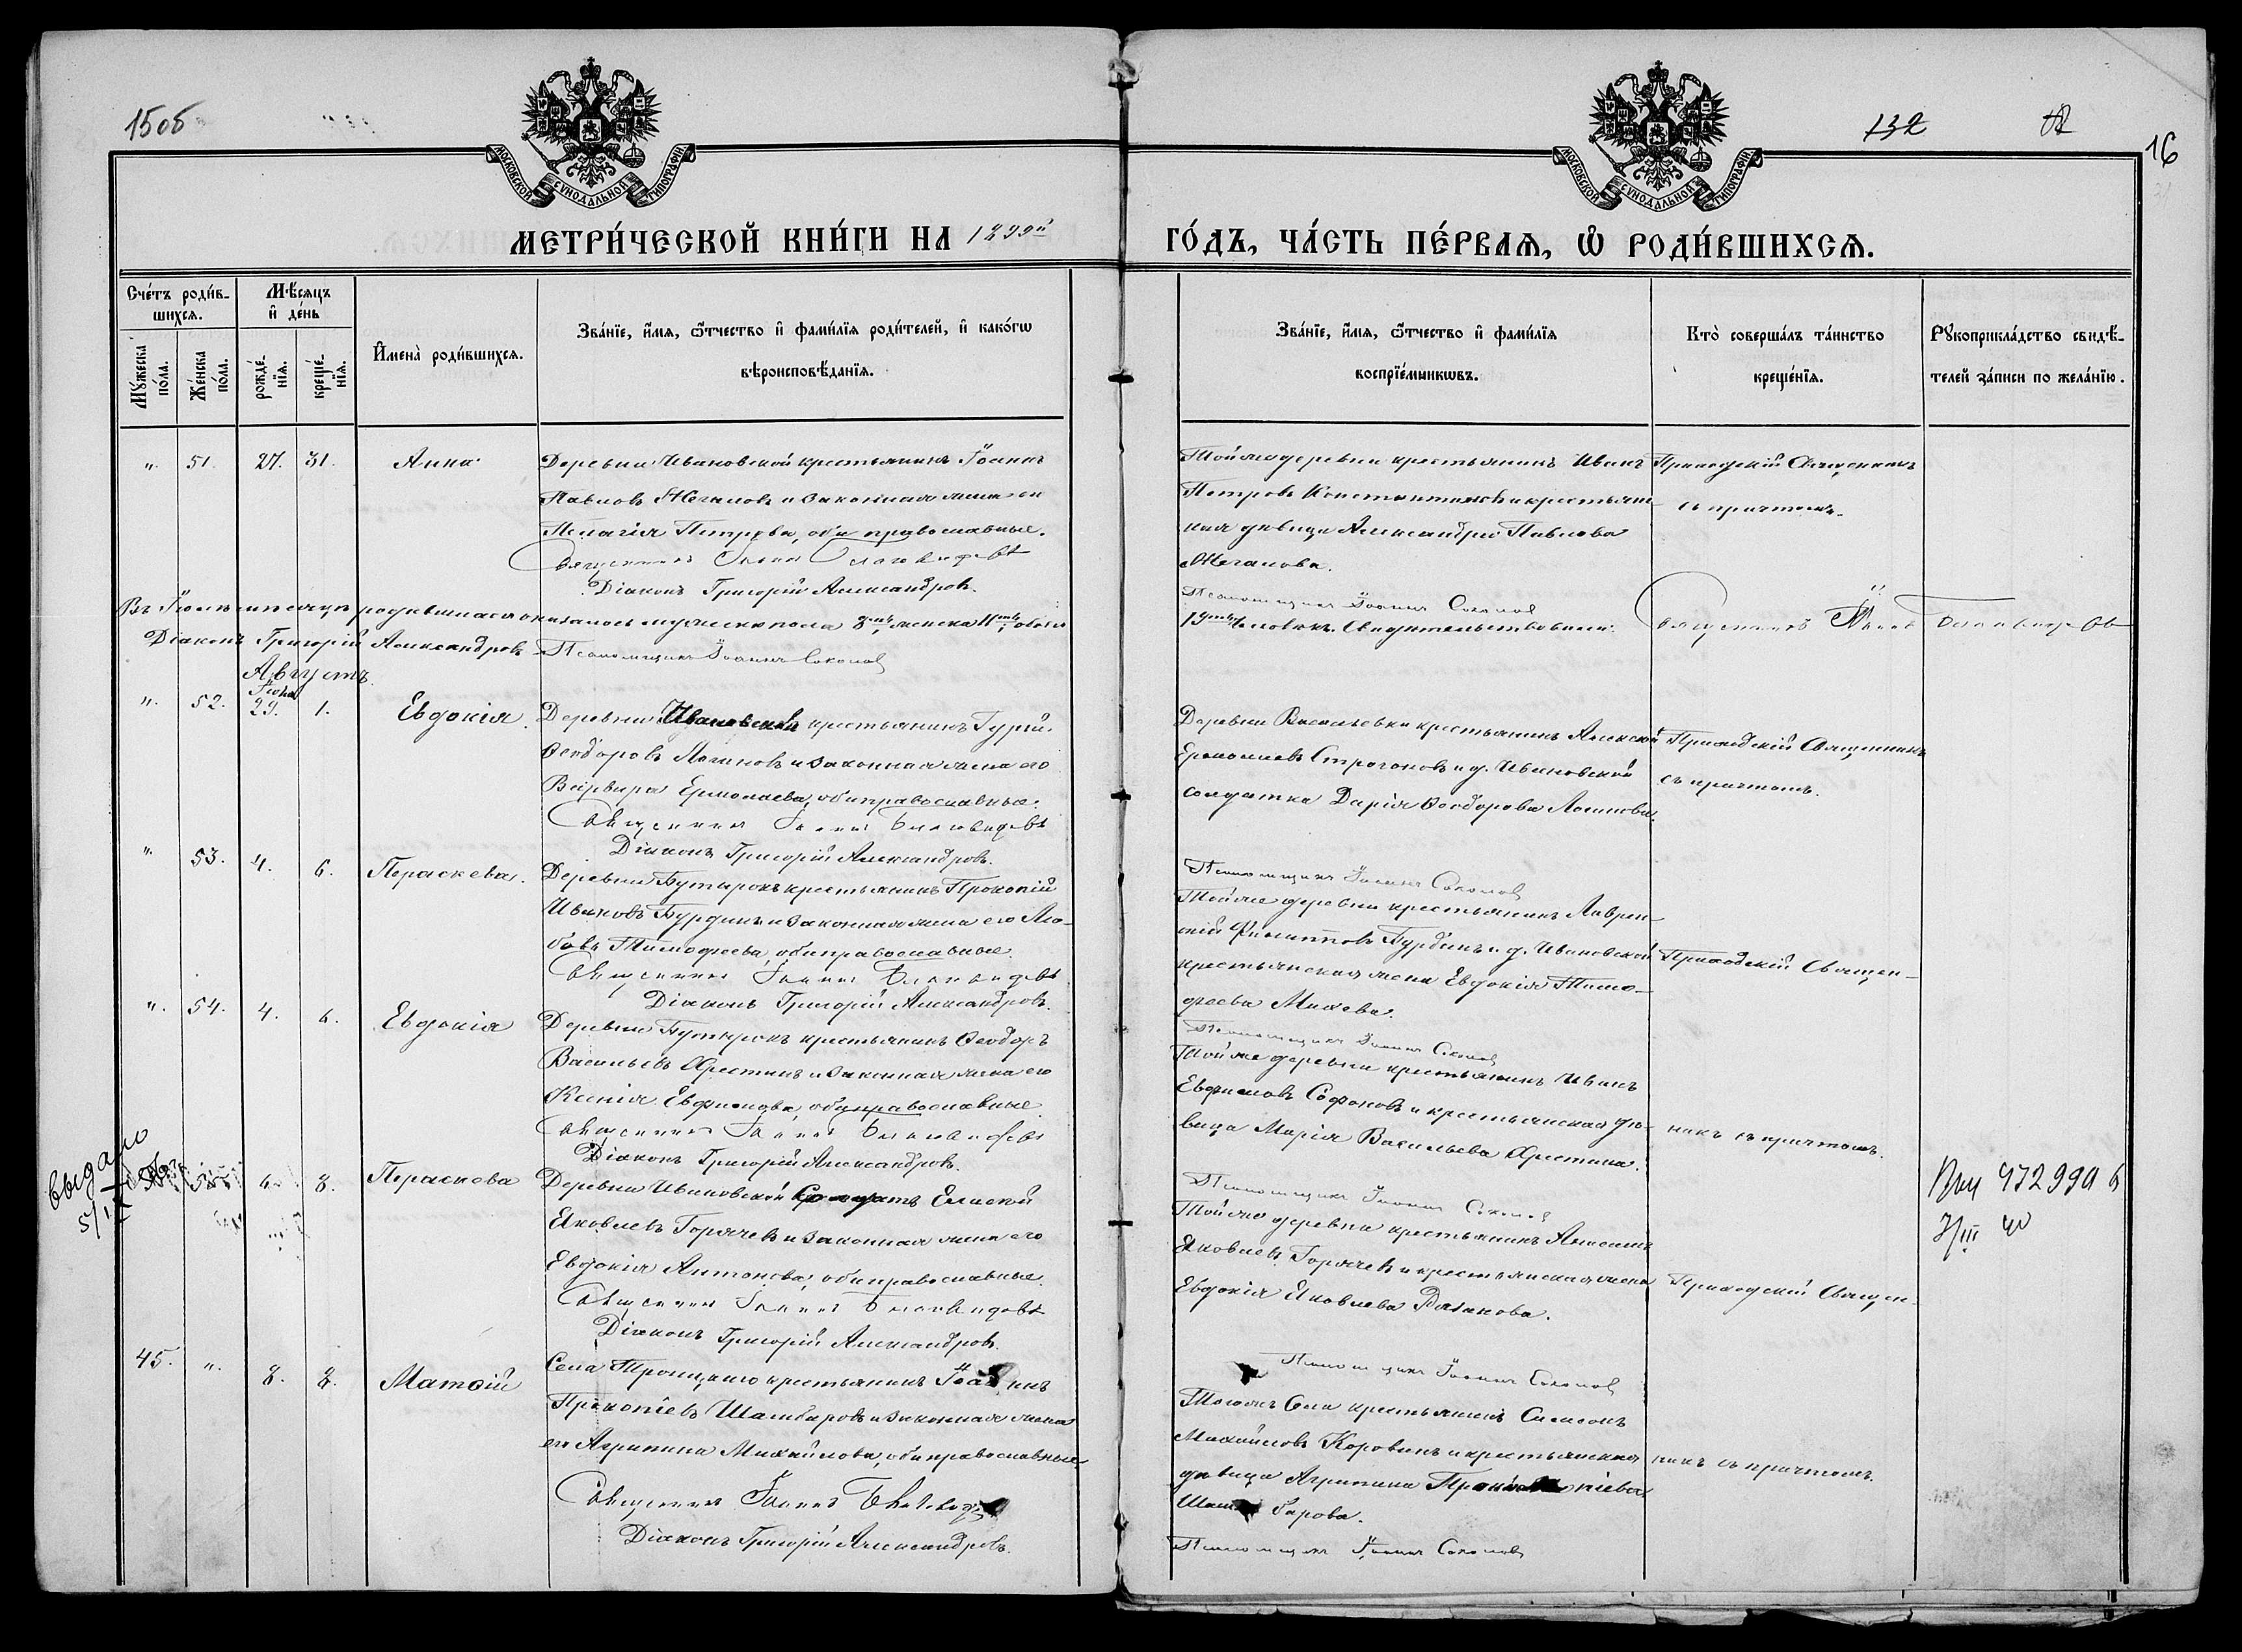 15об
132
16
МОСКОВСКОЙ СѴНОДАЛЬНОЙ ТИПОГРАФІИ
МОСКОВСКОЙ СѴНОДАЛЬНОЙ ТИПОГРАФІИ
МЕТРИ́ЧЕСКОЙ КНИ́ГИ НА 1899й
ГО́ДЪ, ЧА́СТЬ ПЕ́РВАѦ, Ѡ҆ РОДИ́ВШИХСѦ.
Счє́тъ роди́в-
шихсѧ.
Мѣ́сѧцъ
и҆ де́нь
Мꙋ́жеска
по́ла.
Же́нска
по́ла.
рожде́-
нїѧ.
креще́-
нїѧ.
И҆мена̀ роди́вшихсѧ.
Зва́нїе, и҆́мѧ, ѻ҆́тчество и҆ фами́лїѧ роди́телей, и҆ како́гѡ
вѣроисповѣ́данїѧ.
Зва́нїе, и҆́мѧ, ѻ҆́тчество и҆ фами́лїѧ
воспрїе́мникѡвъ.
Кто̀ соверша́лъ та́инство
креще́нїѧ.
Рꙋкоприкла́дство свидѣ́-
телей за́писи по жела́нїю.
" 51. 27. 31. Анна
Деревни Ивановской крестьянинъ Іоаннъ
Павловъ Жегаловъ и законная жена его
Пелагія Петрова, оба православные.
Священникъ Іоаннъ Благовидовъ
Діаконъ Григорій Александровъ.
Той же деревни крестьянинъ Иванъ
Петровъ Константиновъ и крестьянс-
кая дѣвица Александра Павлова
Жегалова.
Псаломщикъ Іоаннъ Соколовъ
Приходскій Священникъ
съ причтомъ.
Въ Іюлѣ мѣсяцѣ родившихся оказалось мужеска пола 8мь, женска 11ть, обоего
19ть человѣкъ. Свидѣтельствовали:
Священникъ Іоаннъ Благовидовъ
Діаконъ Григорій Александровъ
Псаломщикъ Іоаннъ Соколовъ
Августъ.
" 52. Іюля 29. 1. Евдокія.
Деревни Ивановской крестьянинъ Гурій
Ѳеодоровъ Логиновъ и законная жена его
Варвара Ермолаева, оба православные.
Священникъ Іоаннъ Благовидовъ
Діаконъ Григорій Александровъ.
Деревни Васильевки крестьянинъ Алексѣй
Ермолаевъ Строгоновъ и д. Ивановской
солдатка Дарія Ѳеодорова Логинова.
Псаломщикъ Іоаннъ Соколовъ
Приходскій Священникъ
съ причтомъ.
" 53. 4. 6. Параскева.
Деревни Бутырокъ крестьянинъ Прокопій
Ивановъ Бурдинъ и законная жена его Лю-
бовь Тимофеева, оба православные.
Священникъ Іоаннъ Благовидовъ
Діаконъ Григорій Александровъ.
Той же деревни крестьянинъ Лаврен-
тій Филипповъ Бурдинъ и д. Ивановской
крестьянская жена Евдокія Тимо-
феева Михеева.
Псаломщикъ Іоаннъ Соколовъ
Приходскій Священ-
" 54. 4. 6. Евдокія
Деревни Бутырокъ крестьянинъ Ѳеодоръ
Васильевъ Хрестинъ и законная жена его
Ксенія Евфимова, оба православные.
Священникъ Іоаннъ Благовидовъ
Діаконъ Григорій Александровъ.
Той же деревни крестьянинъ Иванъ
Евфимовъ Софоновъ и крестьянская дѣ-
вица Марія Васильева Хрестина.
Псаломщикъ Іоаннъ Соколовъ
никъ съ причтомъ.
выдано
55. 6. 8. Параскева
Деревни Ивановской Солдатъ Елисей
Яковлевъ Горячевъ и законная жена его
Евдокія Антонова, оба православные.
Священникъ Іоаннъ Благовидовъ
Діаконъ Григорій Александровъ.
Той же деревни крестьянинъ Алексѣй
Яковлевъ Горячевъ и крестьянская жена
Евдокія Яковлева Разанова.
Псаломщикъ Іоаннъ Соколовъ
Приходскій Священ-
472990
7/III 40
45. " 8. 8. Матѳій
Села Троицкаго крестьянинъ Іоаннъ
Прокопіевъ Шамбаровъ и законная жена
его Агрипина Михайлова, оба православные.
Священникъ Іоаннъ Благовидовъ
Діаконъ Григорій Александровъ.
Того же Села крестьянинъ Симеонъ
Михайловъ Коровинъ и крестьянская
дѣвица Агрипина Прокопіева
Шамбарова.
Псаломщикъ Іоаннъ Соколовъ
никъ съ причтомъ.